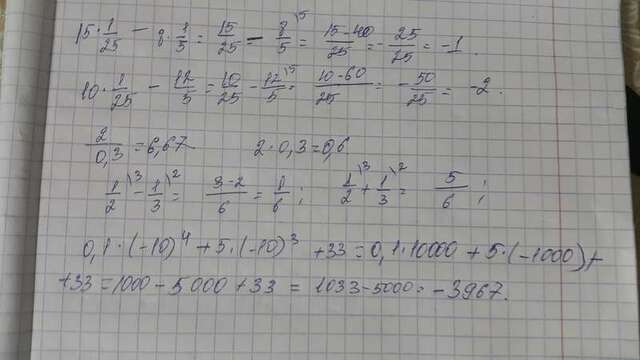 15·1/25 − 8·1/5 = 15/25 − 8/5 \5 = 15−40/25 = −25/25 = −1.
10·1/25 − 12/5 = 10/25 − 12/5 \5 = 10−60/25 = −50/25 = −2.
2/0,3 = 6,67 2·0,3=0,6
1/2 \3 − 1/3 \2 = 3−2/6 = 1/6; 1/2 \3 + 1/3 \2 = 5/6;
0,1·(−10)⁴ + 5·(−10)³ +33 = 0,1·10000 + 5·(−1000)+
+33 = 1000 − 5000 + 33 = 1033−5000 = −3967.